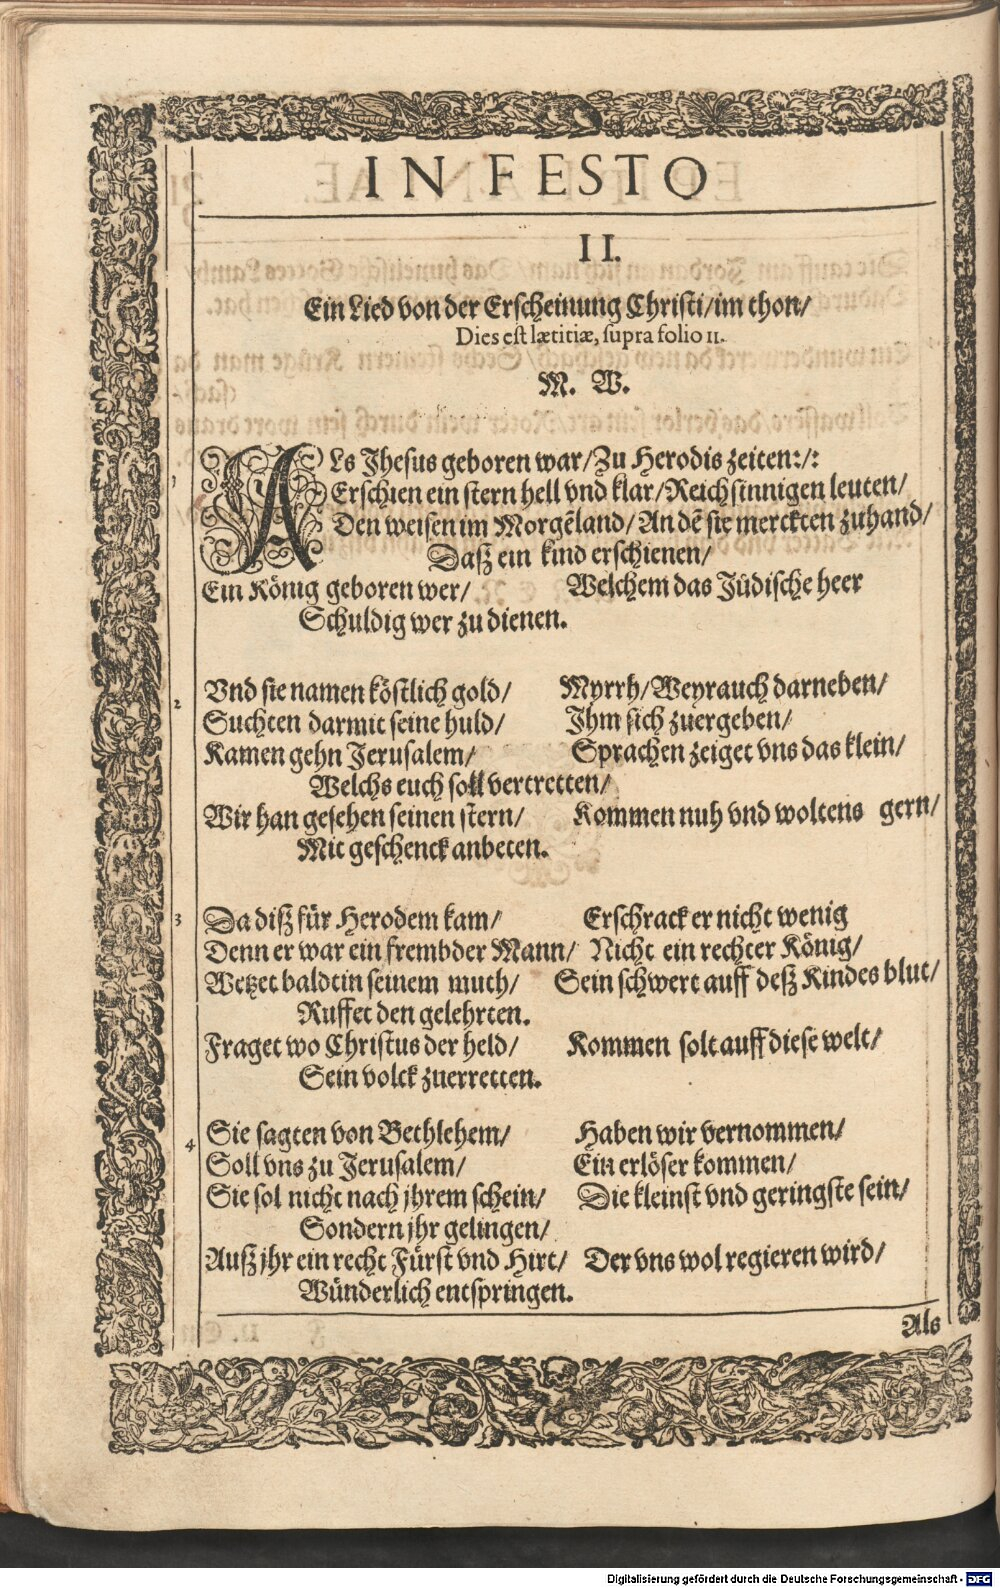 IN FESTO
II.
Ein Lied von der Erscheinung Christi/im thon/
Dies est lætitiæ, supra folio 11.
M. W.
1
ALs Jhesus geboren war/Zu Herodis zeiten:/:
Erschien ein stern hell vnd klar/Reichsinnigen leuten/
Den weisen im Morgẽland/An dẽ sie merckten zuhand/
Dasz ein kind erschienen/
Ein König geboren wer/ Welchem das Jüdische heer
Schuldig wer zu dienen.
2 Vnd sie namen köstlich gold/ Myrrh/Weyrauch darneben/
Suchten darmit seine huld/ Ihm sich zuergeben/
Kamen gehn Jerusalem/ Sprachen zeiget vns das klein/
Welchs euch soll vertretten/
Wir han gesehen seinen stern/ Kommen nuh vnd woltens gern/
Mit geschenck anbeten.
3 Da disz für Herodem kam/ Erschrack er nicht wenig
Denn er war ein frembder Mann/ Nicht ein rechter König/
Wetzet baldt in seinem muth/ Sein schwert auff desz Kindes blut/
Ruffet den gelehrten.
Fraget wo Christus der held/ Kommen solt auff diese welt/
Sein volck zuerretten.
4 Sie sagten von Bethlehem/ Haben wir vernommen/
Soll vns zu Jerusalem/ Ein erlöser kommen/
Sie sol nicht nach jhrem schein/ Die kleinst vnd geringste sein/
Sondern jhr gelingen/
Ausz jhr ein recht Fürst vnd Hirt/ Der vns wol regieren wird/
Wünderlich entspringen.
Als
Digitalisierung gefördert durch die Deutsche Forschungsgemeinschaft - DFG